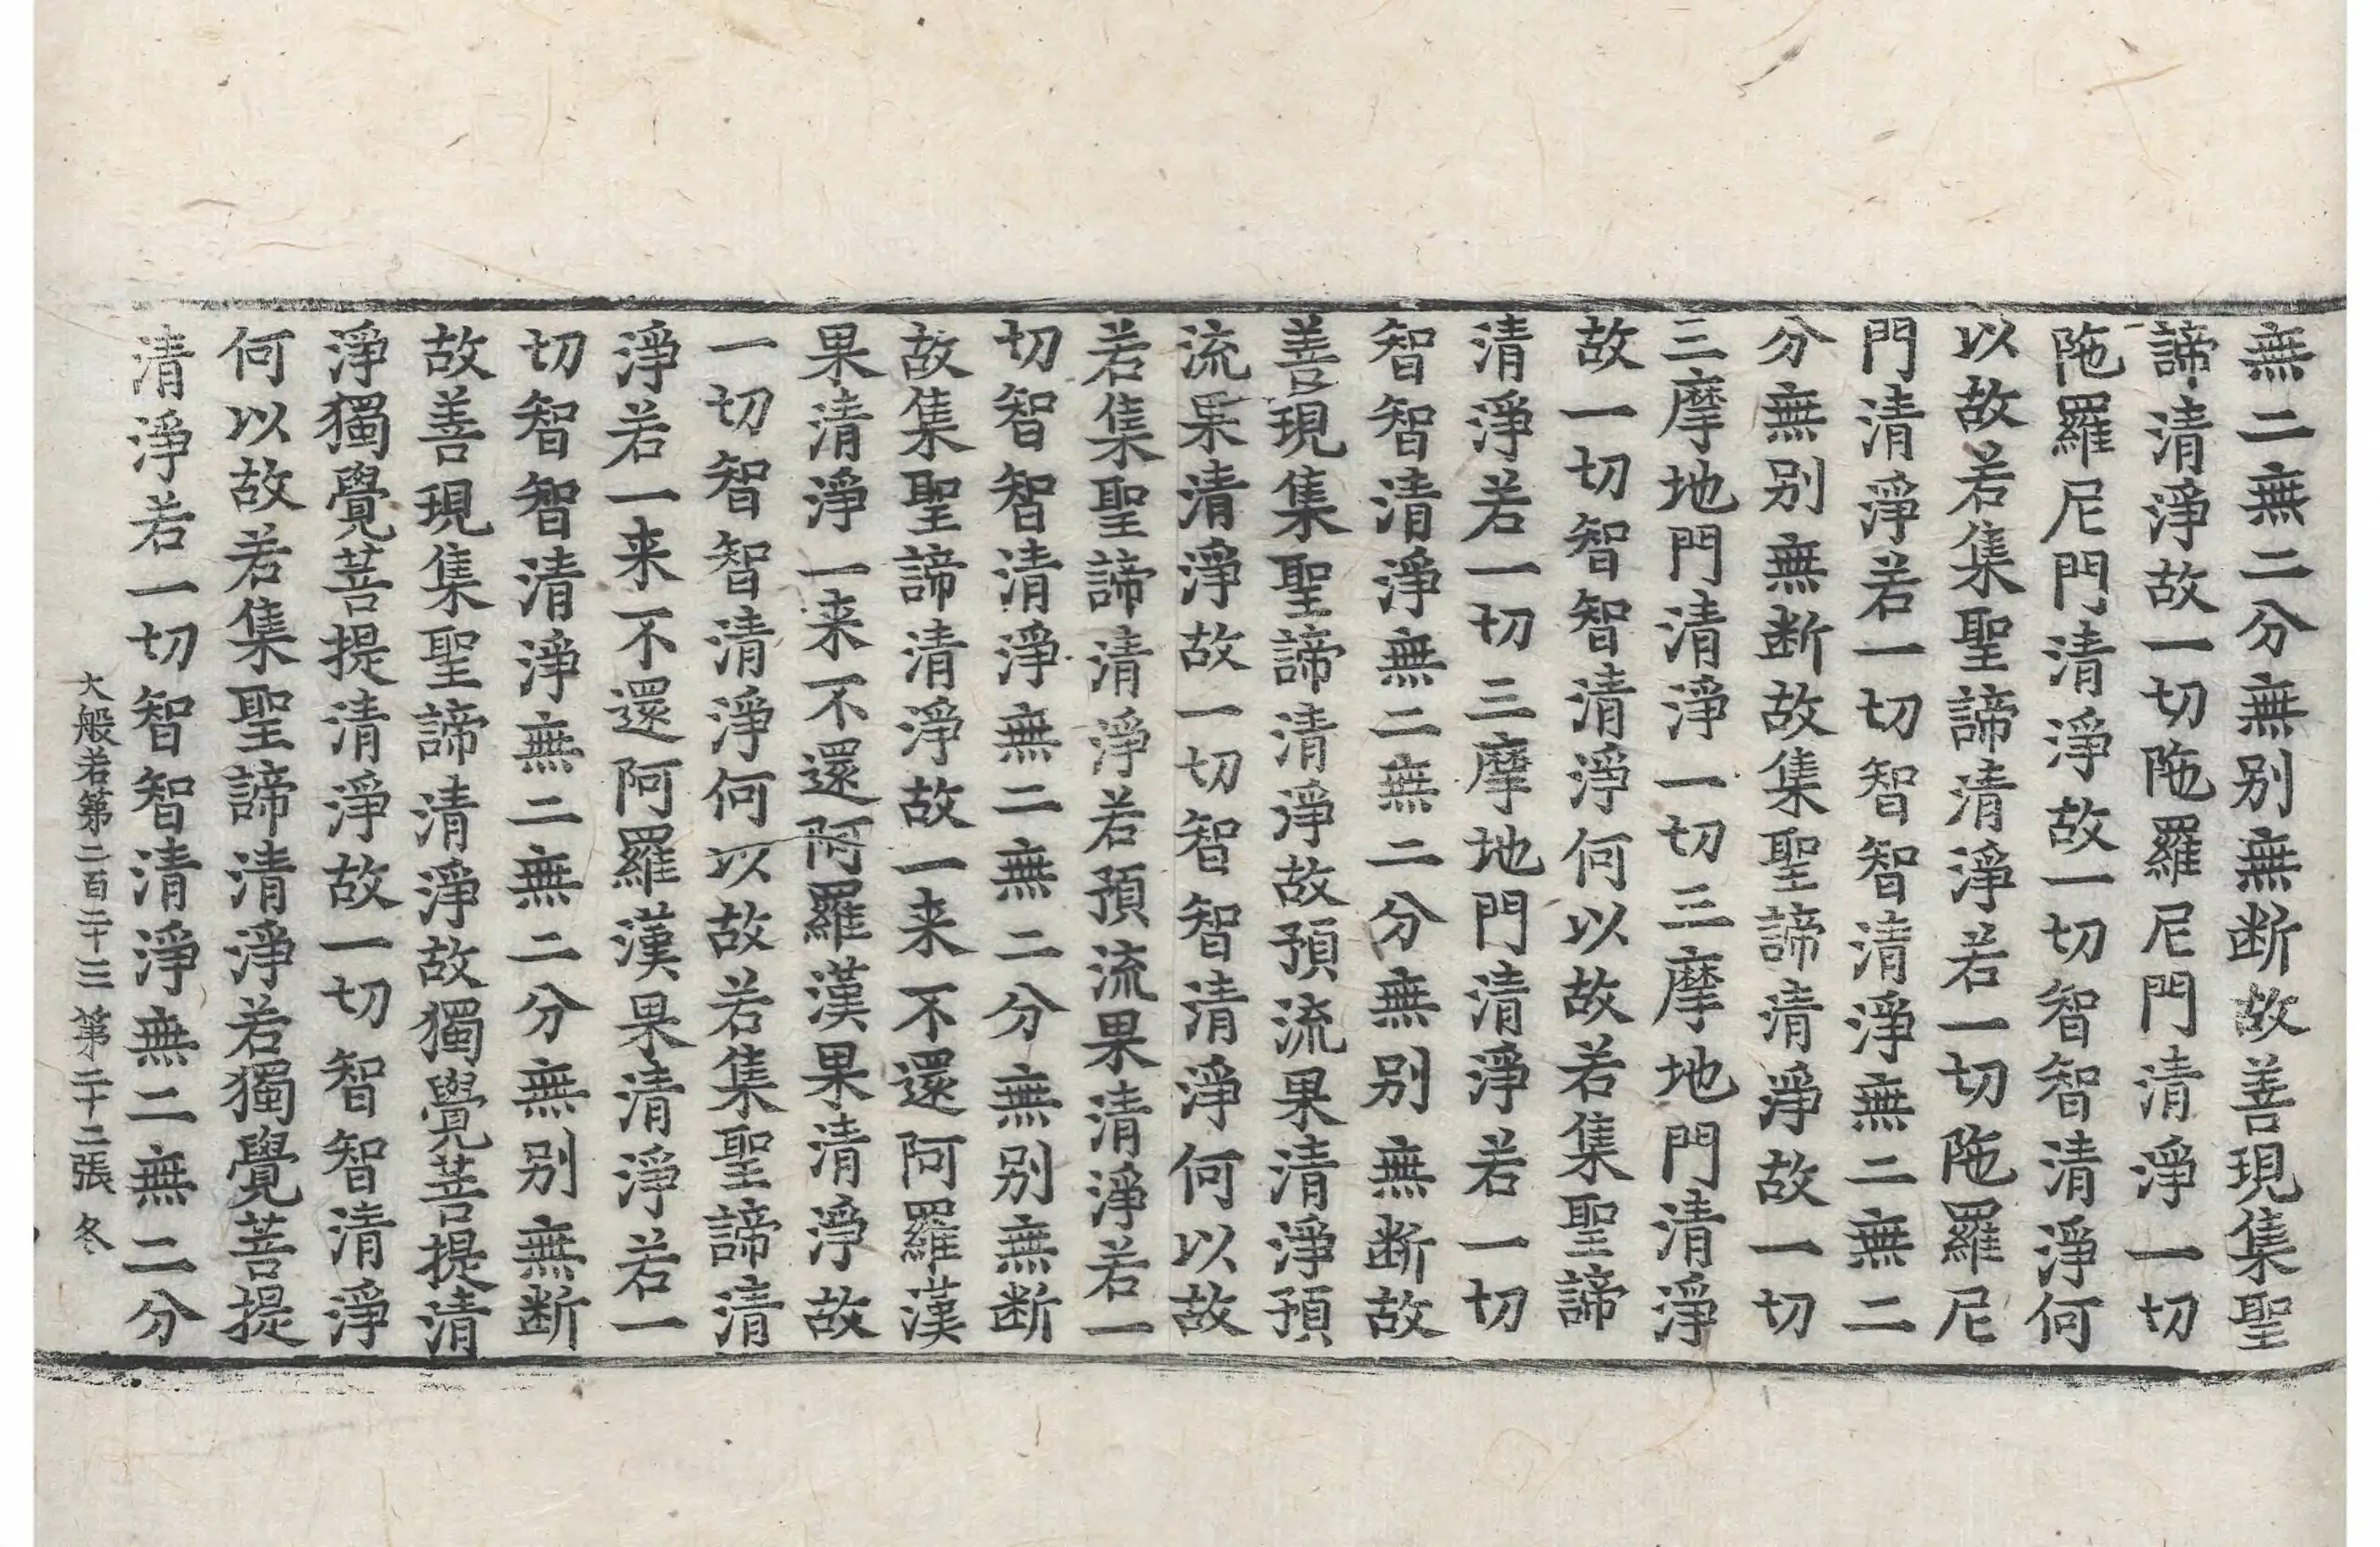 無二無二分無別無断故善現集聖
諦清淨故一切陁羅尼門清淨一切
陁羅尼門清淨故一切智智清淨何
以故若集聖諦清淨若一切陁羅尼
門清淨若一切智智清淨無二無二
分無別無断故集聖諦清淨故一切
三摩地門清淨一切三摩地門清淨
故一切智智清淨何以故若集聖諦
清淨若一切三摩地門清淨若一切
智智清淨無二無二分無別無断故
善現集聖諦清淨故預流果清淨預
流果清淨故一切智智清淨何以故
若集聖諦清淨若預流果清淨若一
切智智清淨無二無二分無別無断
故集聖諦清淨故一来不還阿羅漢
果清淨一来不還阿羅漢果清淨故
一切智智清淨何以故若集聖諦清
淨若一来不還阿羅漢果清淨若一
切智智清淨無二無二分無別無断
故善現集聖諦清淨故獨覺菩提清
淨獨覺菩提清淨故一切智智清淨
何以故若集聖諦清淨若獨覺菩提
清淨若一切智智清淨無二無二分
大般若第二百二十三 第二十二張 冬